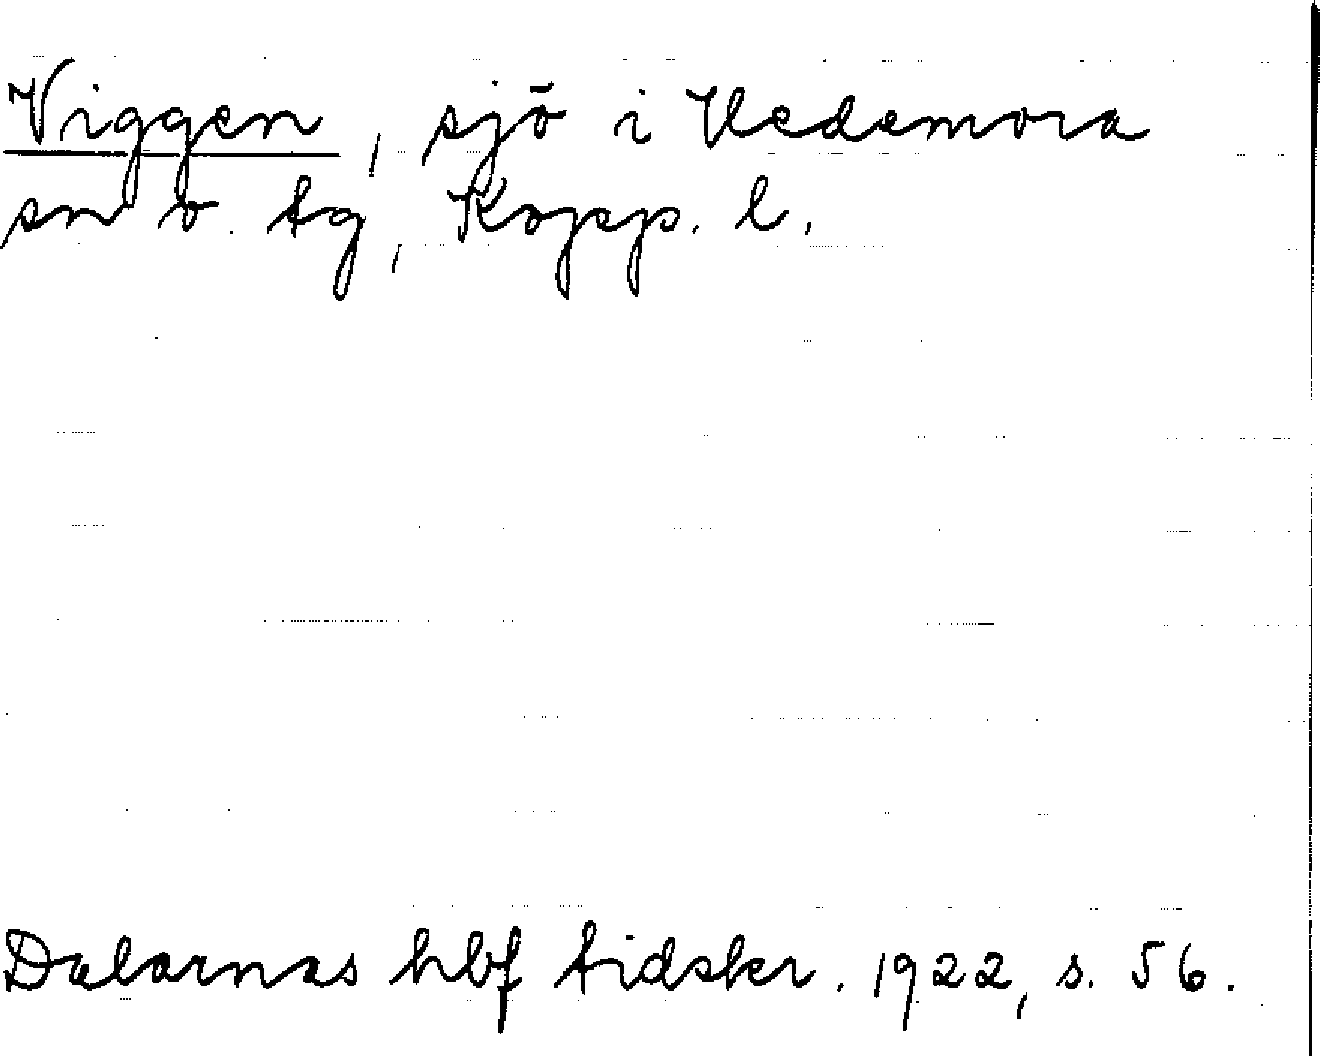 Viggen, sjö i Hedemora
sn o. tg, Kopp. l.
Dalarnas hbf tidskr. 1922, s. 56.